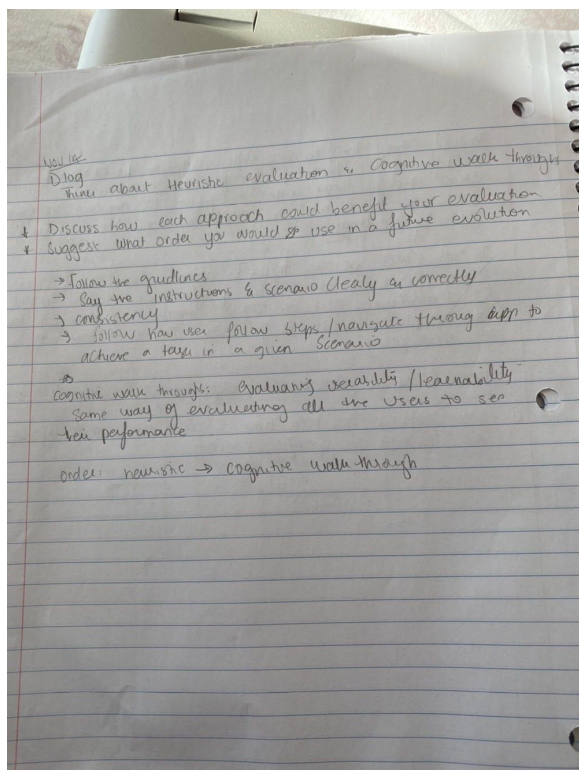 Nov 14
D log
Think about Heuristic evaluation & Cognitive walk through
* Discuss how each approach could benefit your evaluation
* Suggest what order you would use in a future evolution
→ Follow the guidlines
→ Say the instructions & scenario clealy & correctly
→ consistency
→ follow how user follow steps/navigate throug app to
achieve a task in a given scenario
cognitive walk throughs: evaluating usability/learnability
same way of evaluating all the users to see
their performance
order: heuristic → cognitive walk through